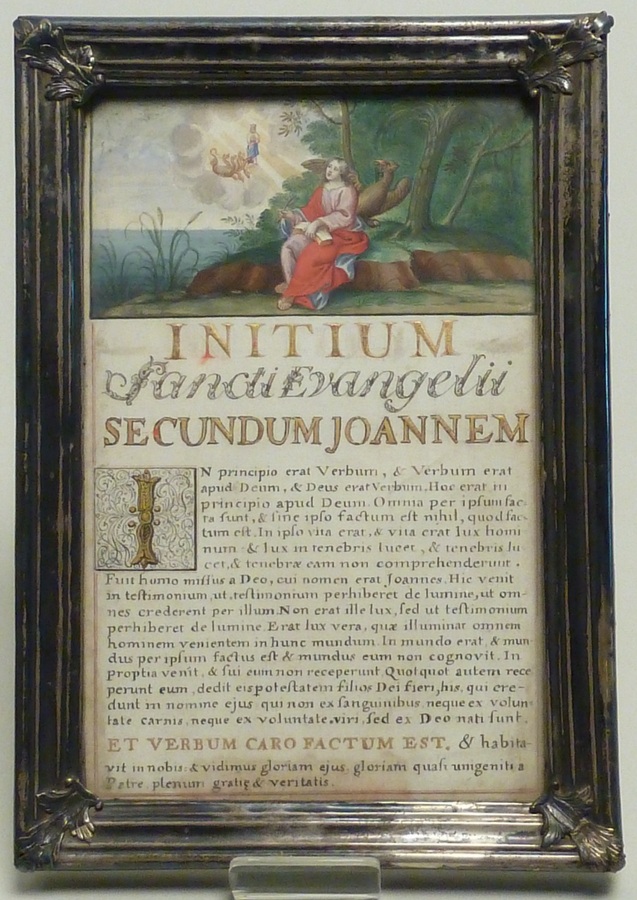 INITIUM
Sancti Evangelii
SECUNDUM JOANNEM
IN principio erat Verbum, & Verbum erat
apud Deum, & Deus erat Verbum. Hoc erat in
principio apud Deum. Omnia per ipsum fac-
ta sunt, & sine ipso factum est nihil, quod fac-
tum est. In ipso vita erat, & vita erat lux homi
num: & lux in tenebris lucet, & tenebris lu-
cet, & tenebræ eam non comprehenderunt.
Fuit homo missus a Deo, cui nomen erat Joannes. Hic venit
in testimonium, ut, testimonium perhiberet de lumine, ut om-
nes crederent per illum. Non erat ille lux, sed ut testimonium
perhiberet de lumine. Erat lux vera, quæ illuminat omnem
hominem venientem in hunc mundum. In mundo erat, & mun-
dus per ipsum factus est & mundus eum non cognovit. In
propria venit, & sui eum non receperunt. Quotquot autem rece
perunt eum, dedit eis potestatem filios Dei fieri, his, qui cre-
dunt in nomine ejus qui non ex sanguinibus, neque ex volun-
tate carnis, neque ex voluntate, viri, sed ex Deo nati sunt.
ET VERBUM CARO FACTUM EST. & habita-
vit in nobis: & vidimus gloriam ejus, gloriam quasi unigeniti a
Patre, plenum gratię & veritatis.